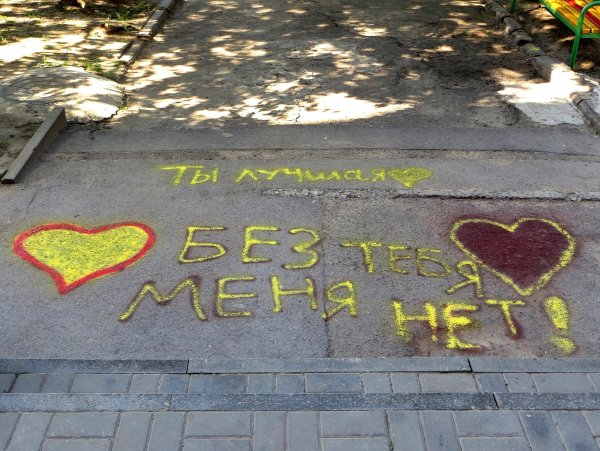 ТЫ лучшая
БЕЗ ТЕБЯ
МЕНЯ НЕТ!